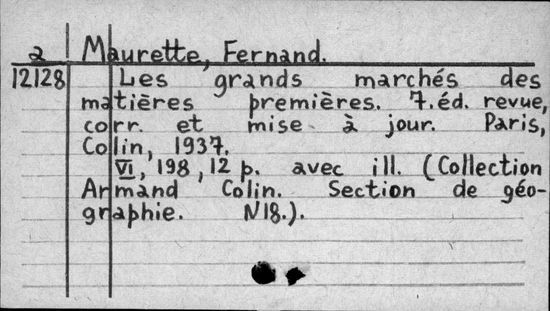 a Maurette, Fernand.
12128 Les grands marchés des
matières premières. 7.éd. revue,
corr. et mise à jour. Paris,
Colin, 1937.
VI, 198, 12 p. avec ill. (Collection
Armand Colin. Section de géo-
graphie. N18.).